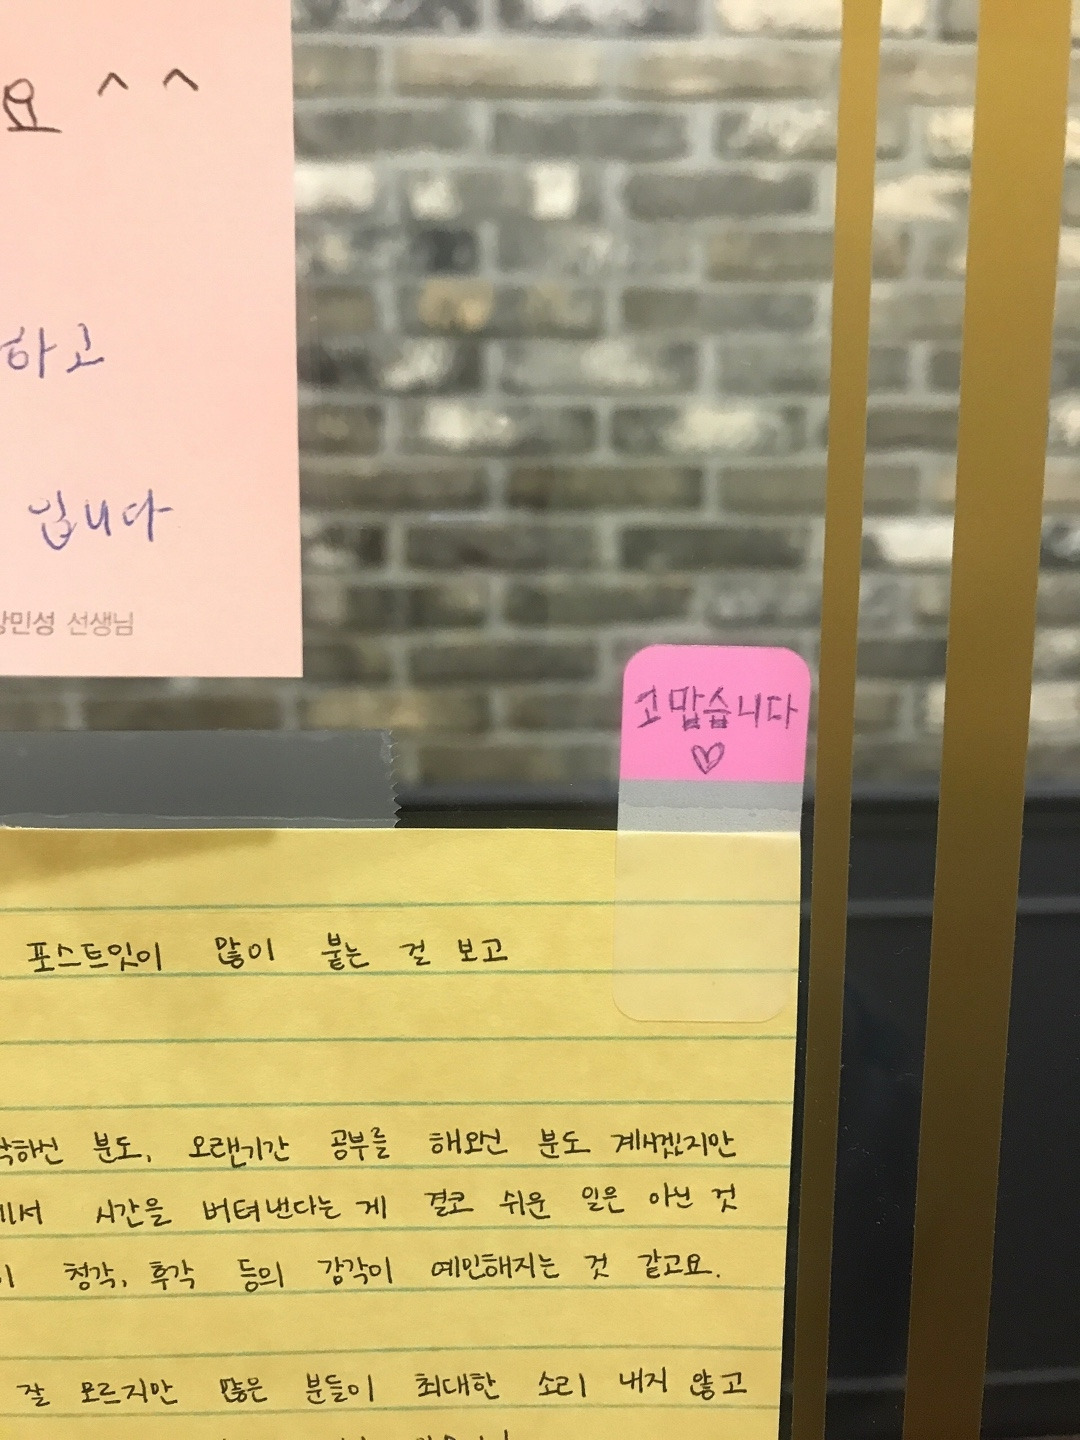 요 ^ ^
하고
입니다
강민성 선생님
고맙습니다
♡
포스트잇이 많이 붙는 걸 보고
작하신 분도, 오랜기간 공부를 해오신 분도 계시겠지만
에서 시간을 버텨낸다는 게 결코 쉬운 일은 아닌 것
이 청각, 후각 등의 감각이 예민해지는 것 같고요.
잘 모르지만 많은 분들이 최대한 소리 내지 않고